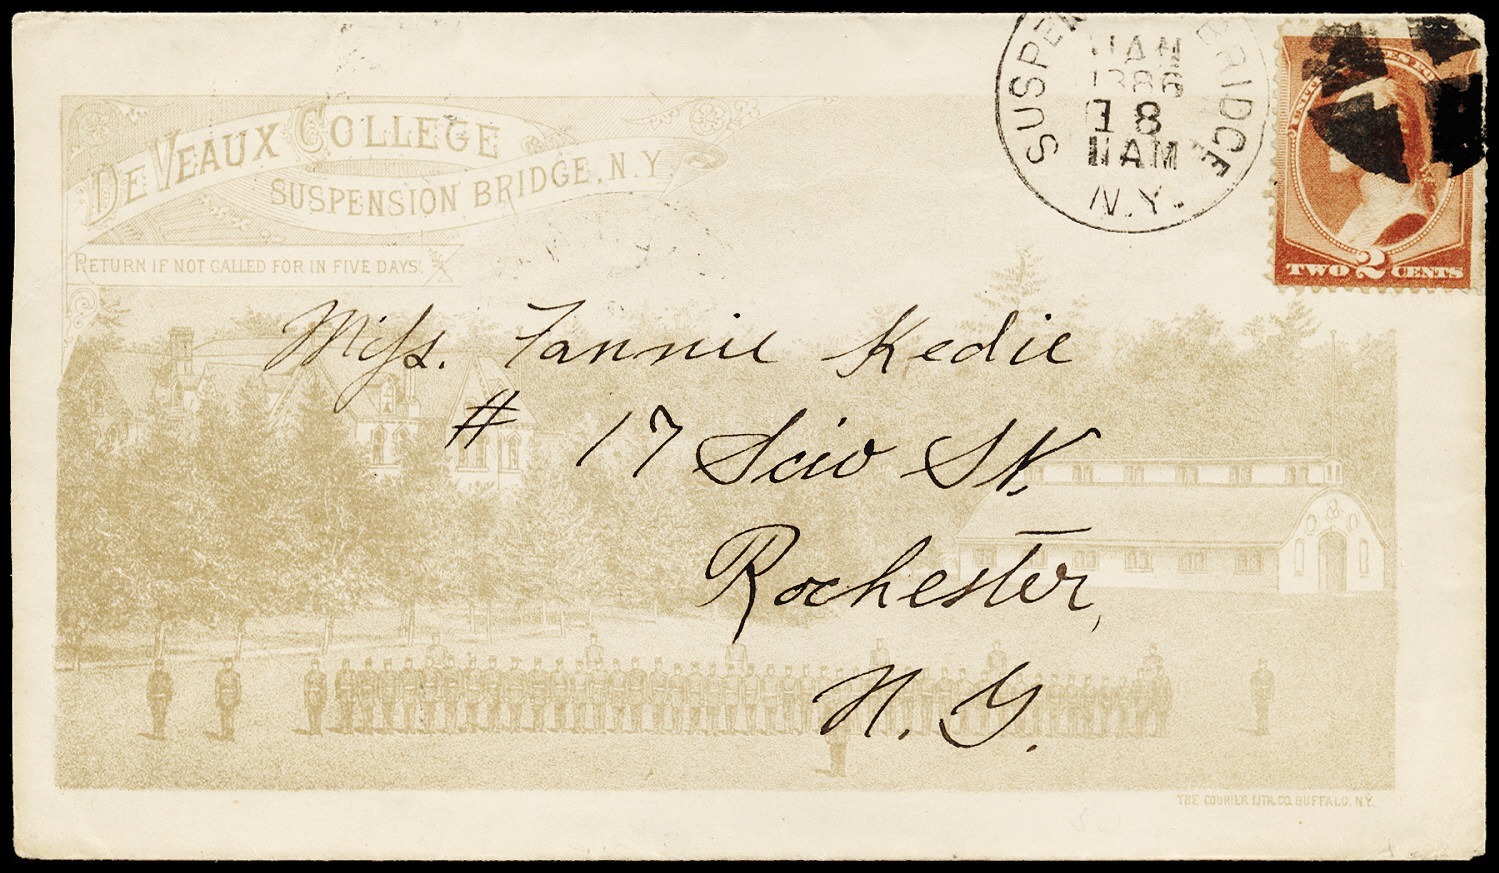 DEVEAUX COLLEGE
SUSPENSION BRIDGE, N.Y.
RETURN IF NOT CALLED FOR IN FIVE DAYS.
SUSPEN BRIDGE
JAN
1886
18
11AM
N.Y.
TWO 2 CENTS
Miss. Fannie Kedie
# 17 Scio St.
Rochester,
N. Y.
THE COURIER LITH. CO. BUFFALO, N.Y.